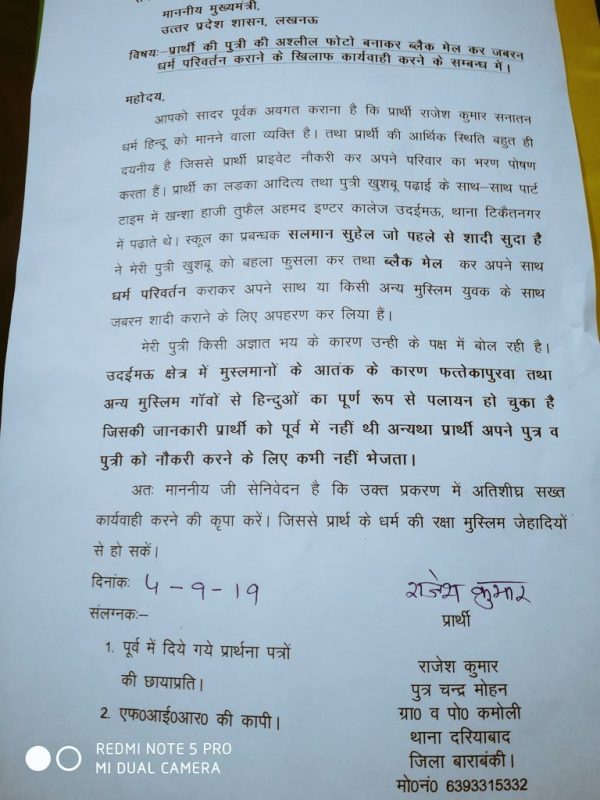 माननीय मुख्यमंत्री,
उत्तर प्रदेश शासन, लखनऊ
विषयः–प्रार्थी की पुत्री की अश्लील फोटो बनाकर ब्लैक मेल कर जबरन
धर्म परिवर्तन कराने के खिलाफ कार्यवाही करने के सम्बन्ध में।
महोदय,
आपको सादर पूर्वक अवगत कराना है कि प्रार्थी राजेश कुमार सनातन
धर्म हिन्दू को मानने वाला व्यक्ति है। तथा प्रार्थी की आर्थिक स्थिति बहुत ही
दयनीय है जिससे प्रार्थी प्राइवेट नौकरी कर अपने परिवार का भरण पोषण
करता हैं। प्रार्थी का लडका आदित्य तथा पुत्री खुशबू पढ़ाई के साथ–साथ पार्ट
टाइम में खन्शा हाजी तुफैल अहमद इण्टर कालेज उदईमऊ, थाना टिकैतनगर
में पढाते थे। स्कूल का प्रबन्धक सलमान सुहेल जो पहले से शादी सुदा है
ने मेरी पुत्री खुशबू को बहला फुसला कर तथा ब्लैक मेल कर अपने साथ
धर्म परिवर्तन कराकर अपने साथ या किसी अन्य मुस्लिम युवक के साथ
जबरन शादी कराने के लिए अपहरण कर लिया हैं।
मेरी पुत्री किसी अज्ञात भय के कारण उन्ही के पक्ष में बोल रही है।
उदईमऊ क्षेत्र में मुस्लमानों के आतंक के कारण फत्तेकापुरवा तथा
अन्य मुस्लिम गॉवों से हिन्दुओं का पूर्ण रूप से पलायन हो चुका है
जिसकी जानकारी प्रार्थी को पूर्व में नहीं थी अन्यथा प्रार्थी अपने पुत्र व
पुत्री को नौकरी करने के लिए कभी नहीं भेजता।
अतः माननीय जी सेनिवेदन है कि उक्त प्रकरण में अतिशीघ्र सख्त
कार्यवाही करने की कृपा करें। जिससे प्रार्थ के धर्म की रक्षा मुस्लिम जेहादियों
से हो सकें।
दिनांकः 4-9-19 राजेश कुमार
संलग्नकः– प्रार्थी
1. पूर्व में दिये गये प्रार्थना पत्रों
की छायाप्रति।
2. एफ0आई0आर0 की कापी।
राजेश कुमार
पुत्र चन्द्र मोहन
ग्रा0 व पो0 कमोली
थाना दरियाबाद
जिला बाराबंकी।
मो0नं0 6393315332
REDMI NOTE 5 PRO
MI DUAL CAMERA